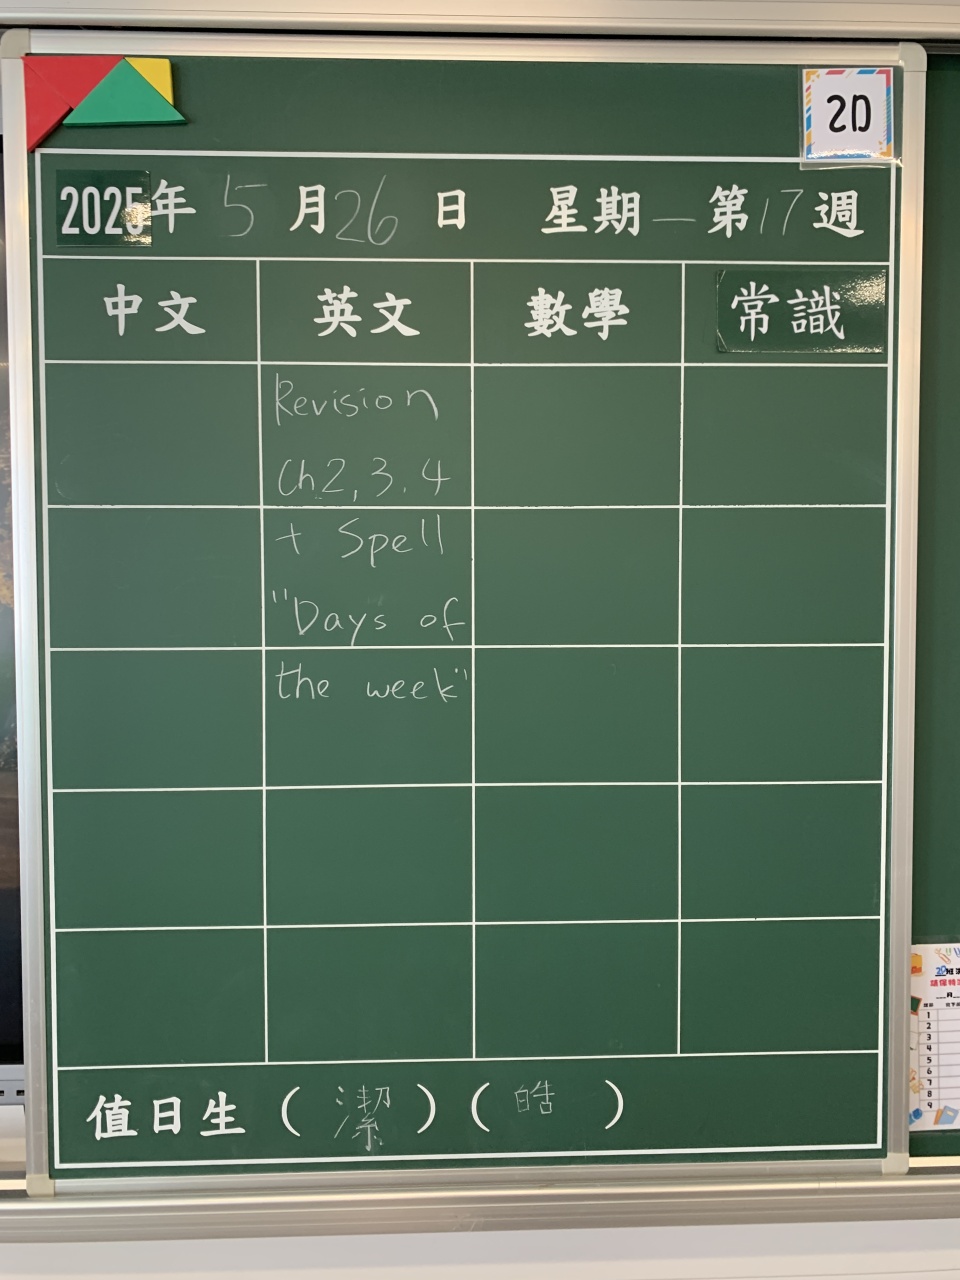 2D
2025年 5 月 26 日 星期 一 第 17 週
中文 英文 數學 常識
Revision
Ch2, 3, 4
+ Spell
"Days of
the week"
值日生 ( 潔 ) ( 皓 )
1
2
3
4
5
6
7
8
9